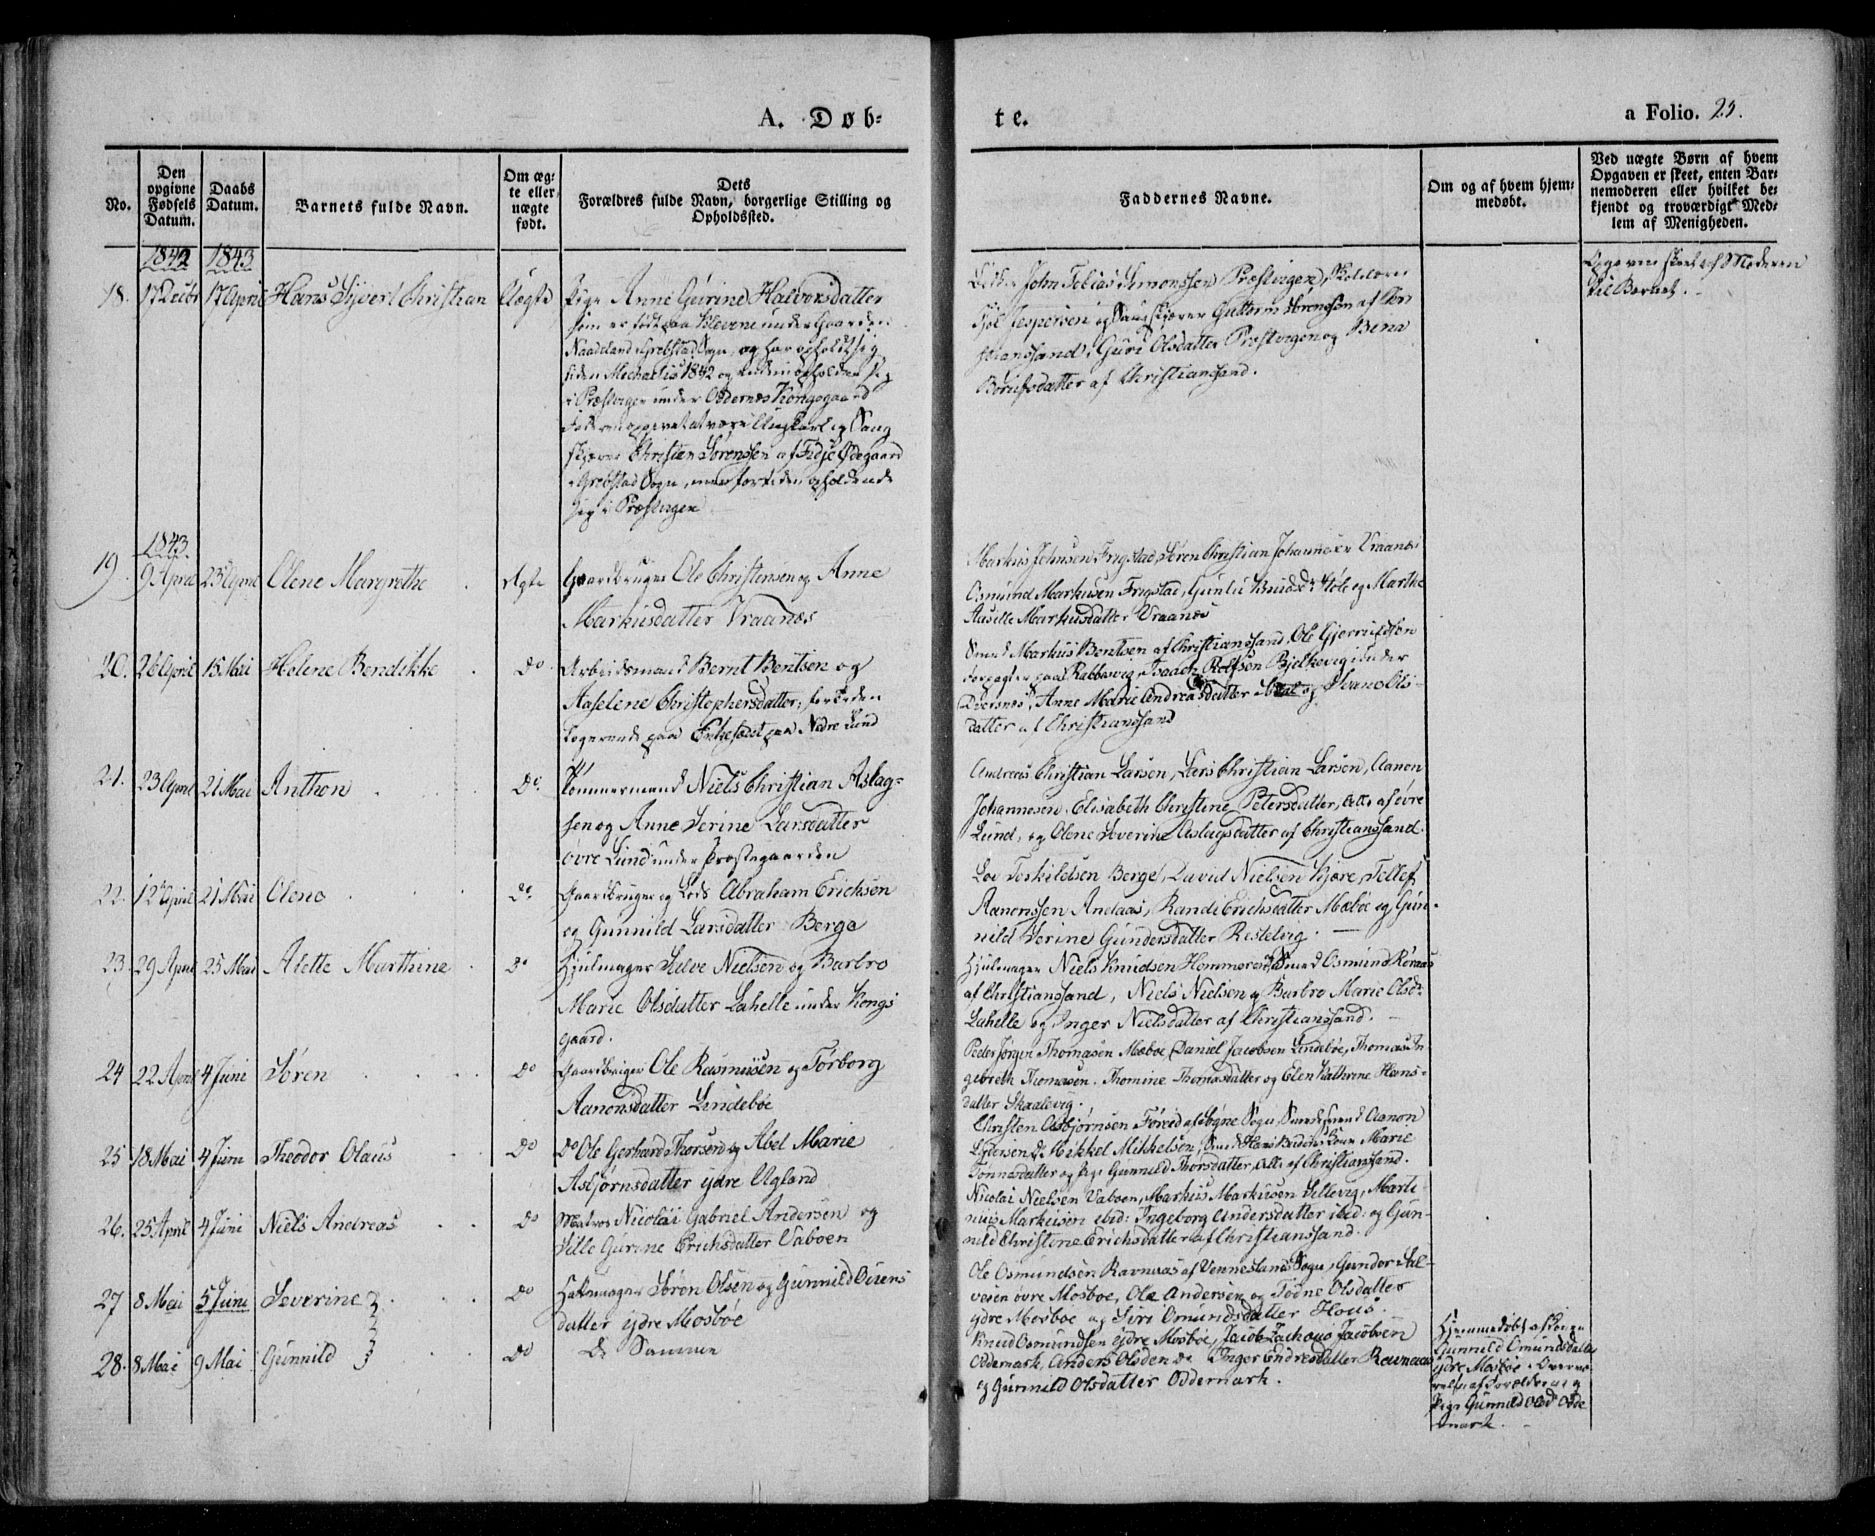 A. Døb-
te.
a Folio. 25.
No.
Den opgivne Fødsels Datum.
Daabs Datum.
Barnets fulde Navn.
Om ægte eller uægte født.
Dets Forældres fulde Navn, borgerlige Stilling og Opholdssted.
Faddernes Navne.
Om og af hvem hjemmedøbt.
Ved uægte Børn af hvem Opgaven er skeet, enten Barnemoderen eller hvilket bekjendt og troværdigt Medlem af Menigheden.
1842 1843
18. 17 Decbr 17 April Hans Syvert Christian Uægte
Pige Anne Gurine Halvorsdatter
som er født paa Kleveni under Gaarden
Naadeland i Grebstad Sogn, og har opholdt sig
siden Michaelis 1842 og endnu opholder sig
i Præstvigen under Oddernes Kongsgaard
Faderen opgivet at være Ungkarl og Saug
skjærer Christen Sørensen af Fidje Ødegaard
i Grebstad Sogn, men for tiden opholdende
sig i Præstvigen
John Tobias Simonsen Præstvigen,
Jespersen og Saugskjærer Guttorm Sørensen af Chri
stianssand, Guri Olsdatter Præstvigen og Bena
Børufsdatter af Christianssand.
Opgaven skeet af Moderen
til Barnet.
1843.
19. 9 April 23 April Olene Margrethe Ægte
Gaardbruger Ole Christensen og Anne
Markusdatter Vraanes
Markus Johnsen Frigstad, Søren Christian Johannesen Vraanes
Osmund Markusen Frigstad, Gunlii Knudsd: Høle og Marthe
Auselle Markusdatter Vraanes
20. 26 April 15 Mai Helene Bendikke Do
Arbeidsmand Bernt Bentsen og
Aaselene Christophersdatter, for tiden
logerende paa Enkesædet paa Nedre Lund
Smed Markus Bentsen af Christianssand, Ole Gjerruldsen
Forpagter paa Rabbersvig, Isaach Rolfsen Bjelkevig under
Dversnes, Anne Marie Andreasdatter og Svane Ols-
datter af Christianssand
21. 23 April 21 Mai Anthon Do
Tømmermand Niels Christian Aslag-
sen og Anne Serine Larsdatter
øvre Lund under Præstegaarden
Andreas Christian Larsen, Lars Christian Larsen, Aanon
Johannesen, Elisabeth Christine Petersdatter, Alle af øvre
Lund, og Olene Severine Aslagsdatter af Christianssand.
22. 12 April 21 Mai Oleno Do
Gaardbruger og Lods Abraham Erichsen
og Gunnild Larsdatter Berge
Lov Terkildsen Berge, David Nielsen Kjære, Tellef
Aanonssen Andaas, Rande Erichsdatter Mæbøe og Gun-
nild Serine Gundersdatter Ristelvig.
23 29 April 25 Mai Alette Marthine Do
Hjulmager Salve Nielsen og Barbro
Marie Olsdatter Lahelle under Kongs
gaard.
Hjulmager Niels Knudsen Hommeren, Smed Osmund Roraas
af Christianssand, Niels Nielsen og Barbro Marie Olsdtr
Lahelle og Inger Nielsdatter af Christianssand.
24 22 April 4 Juni Søren Do
Gaardbruger Ole Rasmusen og Torborg
Aanonsdatter Lindebøe
Peder Jørgen Thomasen Mæboe, Daniel Jacobsen Lindebøe, Thomas In-
gebreth Thomasen, Thomine Thomasdatter og Elen Kathrine Hans-
datter Skaalevig.
25 18 Mai 4 Juni Theodor Olaus Do
Do Ole Gerhard Thorsen og Abel Marie
Asbjørnsdatter ydre Ugland
Christen Asbjørnsen Føreid af Søgne Sogn, Smedsvend Aanon
Pedersen, Do Mikkel Mikkelsen, Marie
Tønnesdatter og Pige Gunnild Thorsdatter, alle af Christianssand.
26. 25 April 4 Juni Niels Andreas Do
Matros Nicolai Gabriel Andersen og
Sille Gurine Erichsdatter Vaboen
Nicolai Nielsen Vaboen, Markus Markusen Sillevig, Marti-
nius Markusen ibid: Ingeborg Andersdatter ibid: og Gun-
nild Christine Erichsdatter af Christianssand.
27 8 Mai 5 Juni Severine Do
Hattemager Søren Olsen og Gunnild Omunds
datter ydre Mosbøe
Ole Osmundsen Ravnaas af Venneslands Sogn, Gunder Sal-
vesen øvre Mosboe, Ole Andersen og Todne Olsdatter
ydre Mosboe og Siri Omundsdatter Hous.
28. 8 Mai 9 Mai Gunnild Do
De Samme
Knud Osmundsen ydre Mosbøe, Jacob Zachæus Jacobsen
Oddernark, Anders Olsen Do Inger Endresdatter Ravnaas
og Gunnild Olsdatter Oddernark.
Hjemmedøbt af Pigen
Gunnild Omundsdatter
ydre Mosbøe i Overvæ
relse af Forældrene og
Pige Gunnild Olsd: Odde
rnark.